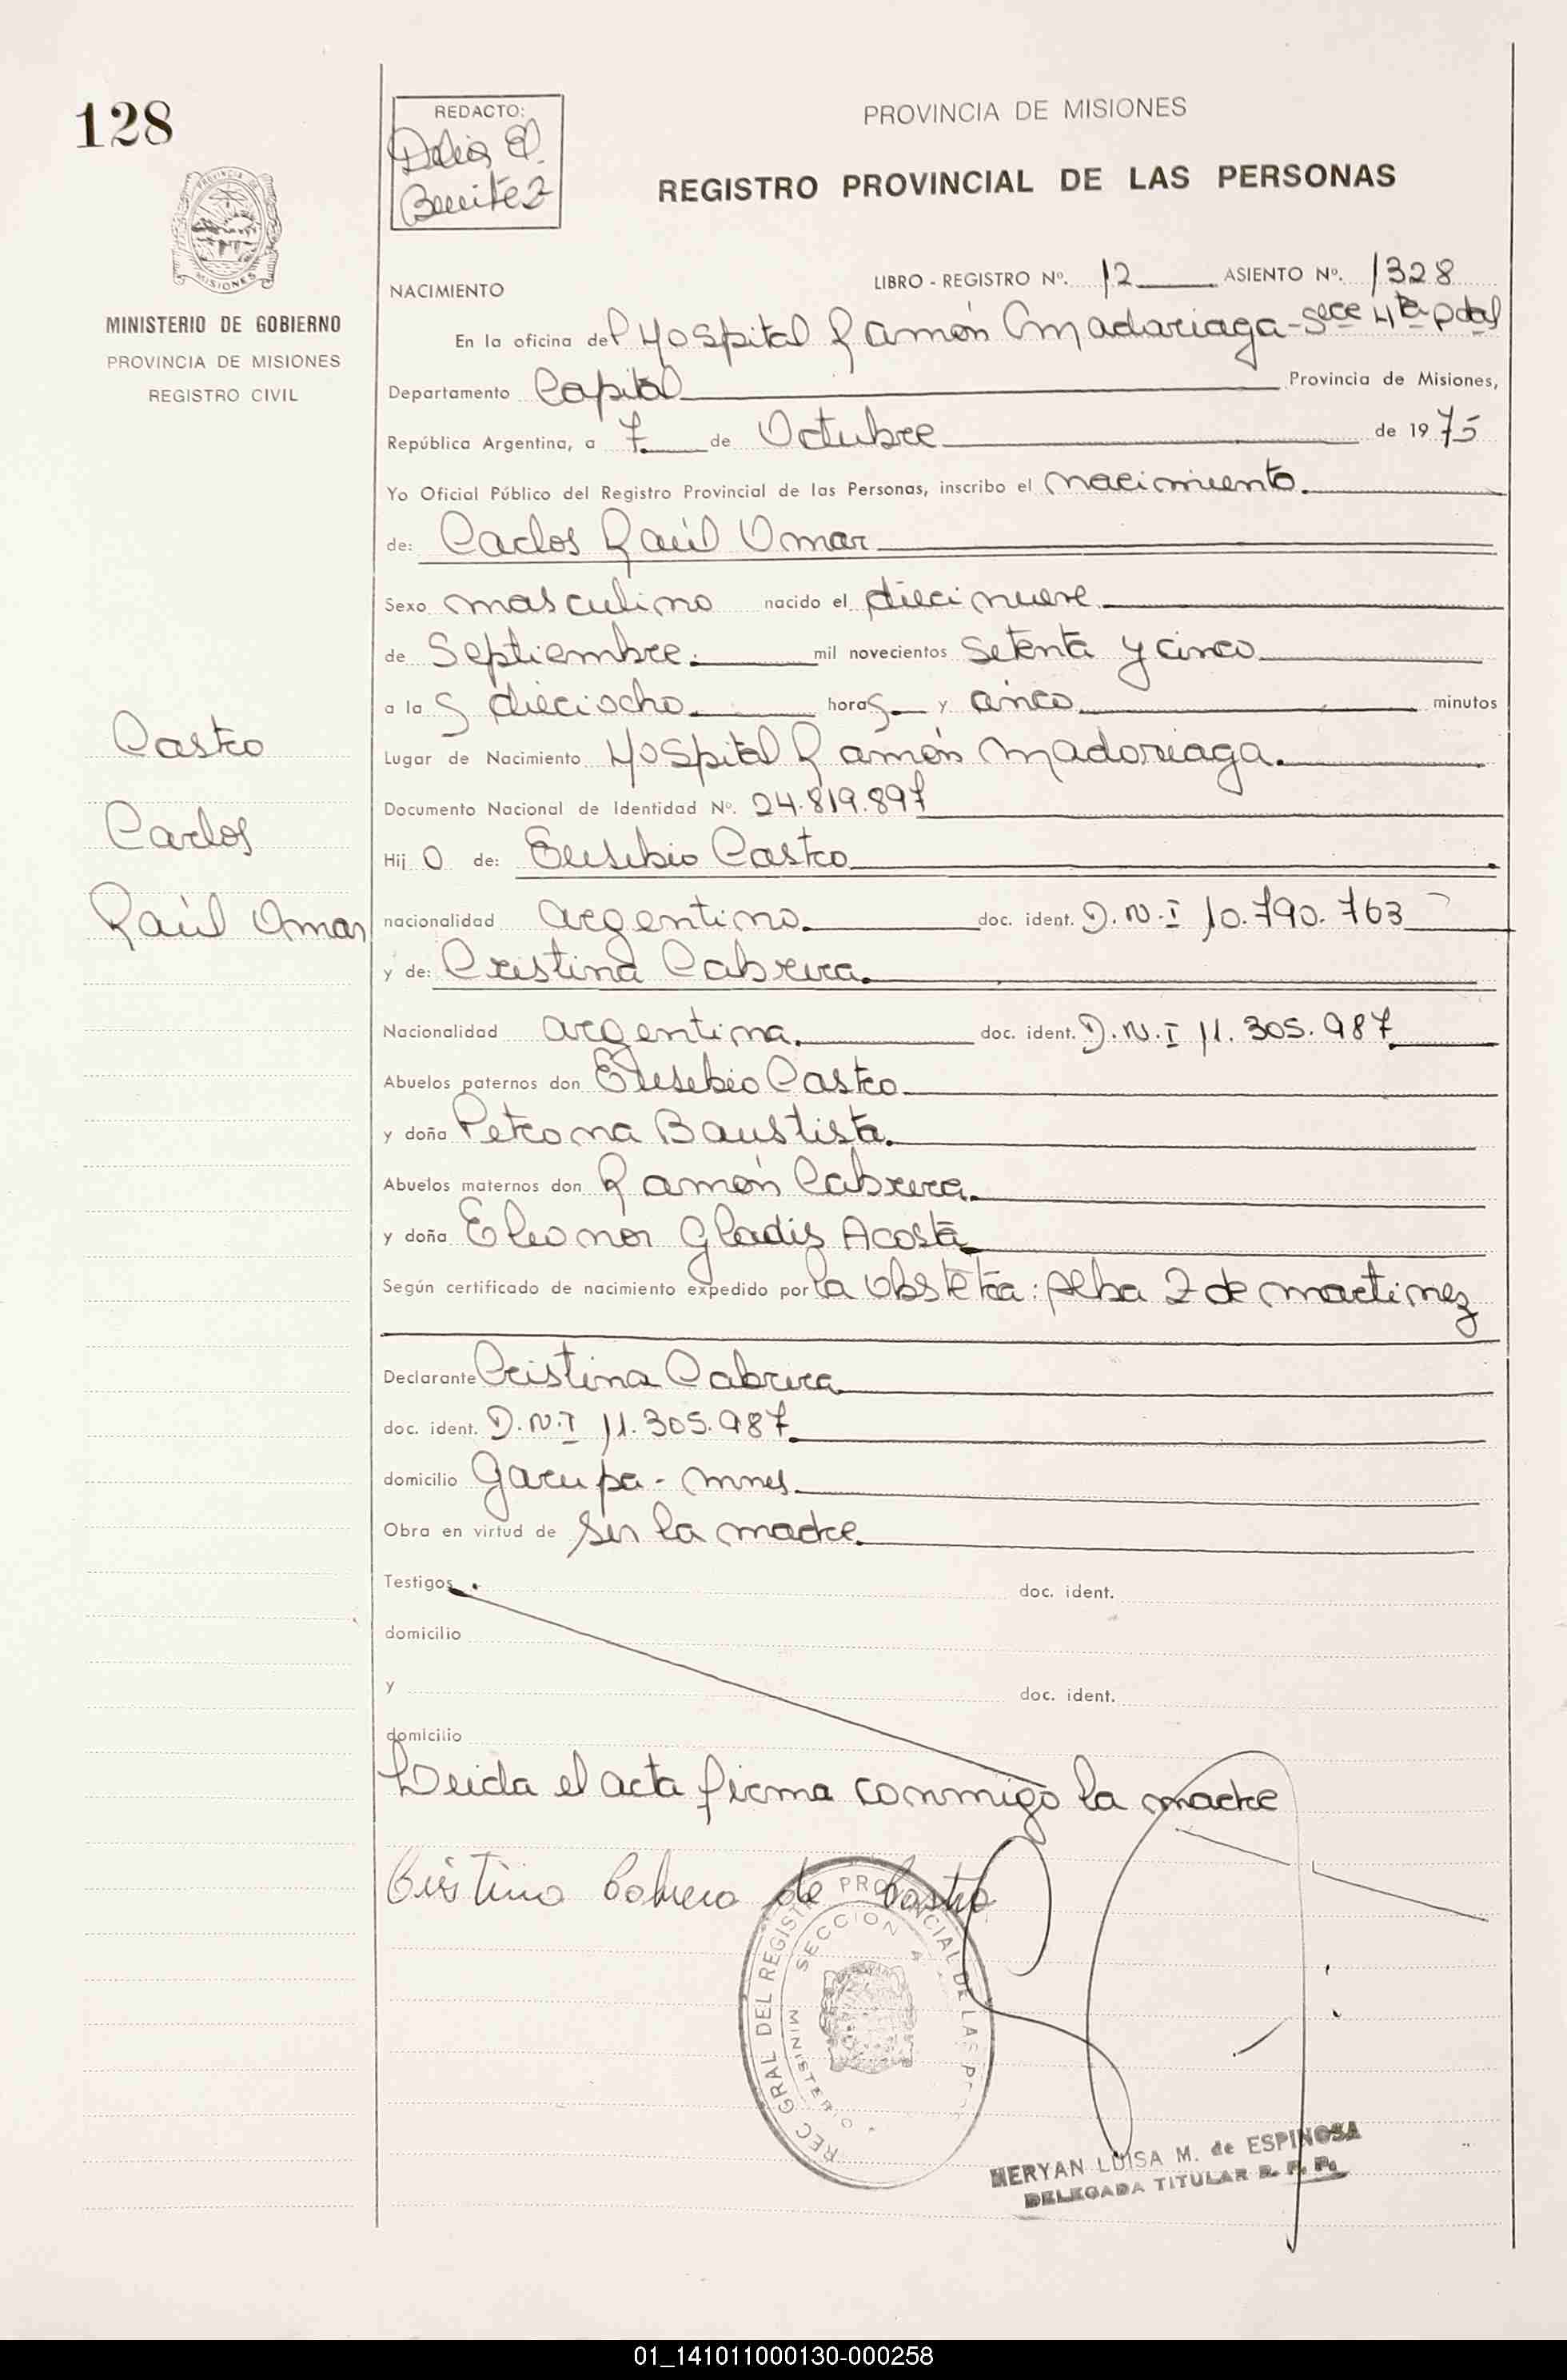 128
REDACTO:
Delia E.
Benitez
PROVINCIA DE MISIONES
REGISTRO PROVINCIAL DE LAS PERSONAS
PROVINCIA DE
MISIONES
MINISTERIO DE GOBIERNO
PROVINCIA DE MISIONES
REGISTRO CIVIL
NACIMIENTO
LIBRO - REGISTRO Nº. 12 ASIENTO Nº. 1328
En la oficina del Hospital Ramón Madariaga - Secc 4ta Pdas
Departamento Capital Provincia de Misiones,
República Argentina, a 7 de Octubre de 1975
Yo Oficial Público del Registro Provincial de las Personas, inscribo el nacimiento.
de: Carlos Raúl Omar
Sexo masculino nacido el diecinueve
de Septiembre. mil novecientos setenta y cinco
a las dieciocho horas y cinco minutos
Lugar de Nacimiento Hospital Ramón Madariaga.
Documento Nacional de Identidad Nº. 24.819.897
Hijo de: Eusebio Castro
nacionalidad argentino. doc. ident. D.N.I 10.790.763
y de: Cristina Cabrera.
Nacionalidad argentina. doc. ident. D.N.I 11.305.987
Abuelos paternos don Eusebio Castro
y doña Petrona Baustista.
Abuelos maternos don Ramón Cabrera.
y doña Eleonor Gladis Acosta
Según certificado de nacimiento expedido por la Obstetra: Alba Z de Martinez
Declarante Cristina Cabrera
doc. ident. D.N.I 11.305.987
domicilio Garupa - Mnes.
Obra en virtud de ser la madre.
Testigos doc. ident.
domicilio
y doc. ident.
domicilio
Leida el acta firma conmigo la madre
Cristina Cabrera de Castro
Castro
Carlos
Raúl Omar
REC GRAL DEL REGISTRO PROVINCIAL DE LAS
SECCION 4
MINISTERIO
NERYAN LUISA M. de ESPINOSA
DELEGADA TITULAR R. P. P.
01_141011000130-000258